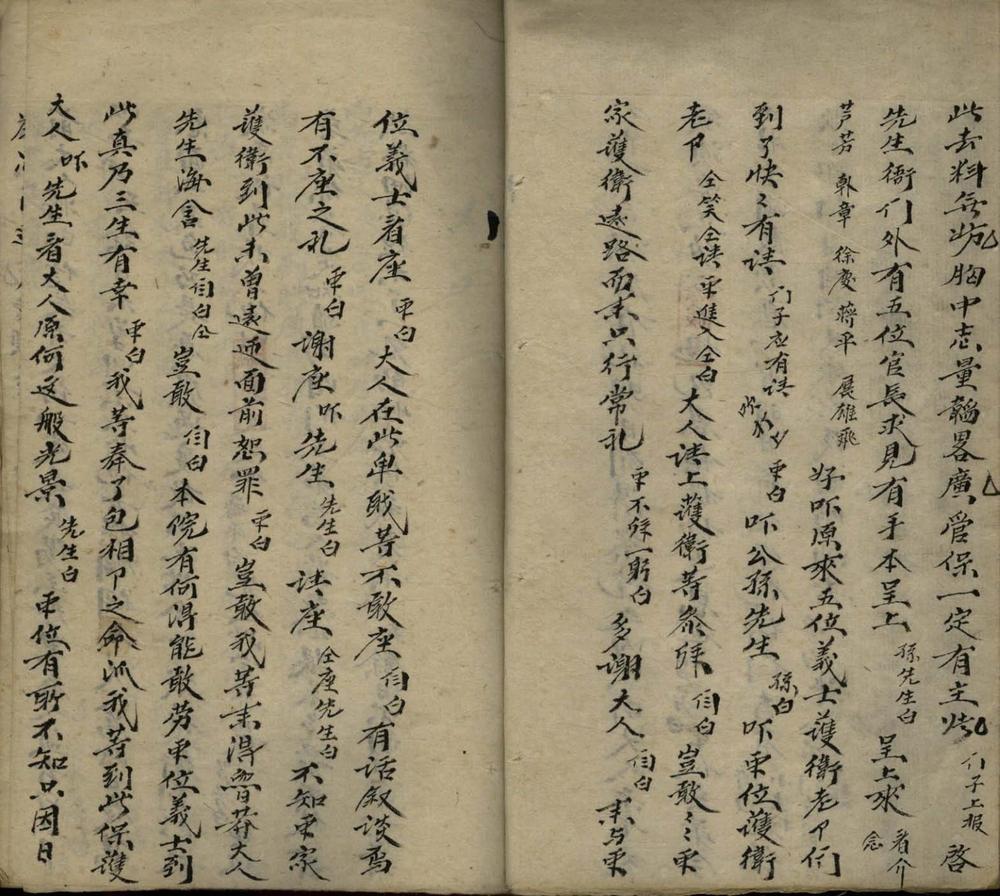 此去料無妨胸中志量韜畧廣管保一定有主張 门子上报 啓
先生衙门外有五位官長求見有手本呈上 孫先生白 呈上來 看介 念
芦芳 韩章 徐慶 蔣平 展雄飛 好吓原來五位義士護衛老卩们
到了快〻有请 门子应有请 众白 吓公孫先生 孫白 吓众位護衛
老卩 仝笑仝请众進入仝白 大人请上護衛等叅拜 闫白 豈敢〻众
家護衛遠路而來只行常礼 众不餘一躬白 多謝大人 闫白 來与众
位義士看座 众白 大人在此卑職等不敢座 闫白 有话叙谈焉
有不座之礼 众白 謝座吓先生 先生白 请座 仝座先生白 不知众家
護衛到此未曾遠迎面前恕罪 众白 豈敢我等來得冒莽大人
先生海含 先生闫白仝 豈敢 闫白 本院有何得能敢劳众位義士到
此真乃三生有幸 众白 我等奉了包相卩之命派我等到此保護
大人吓先生看大人原何这般光景 先生白 众位有所不知只因日